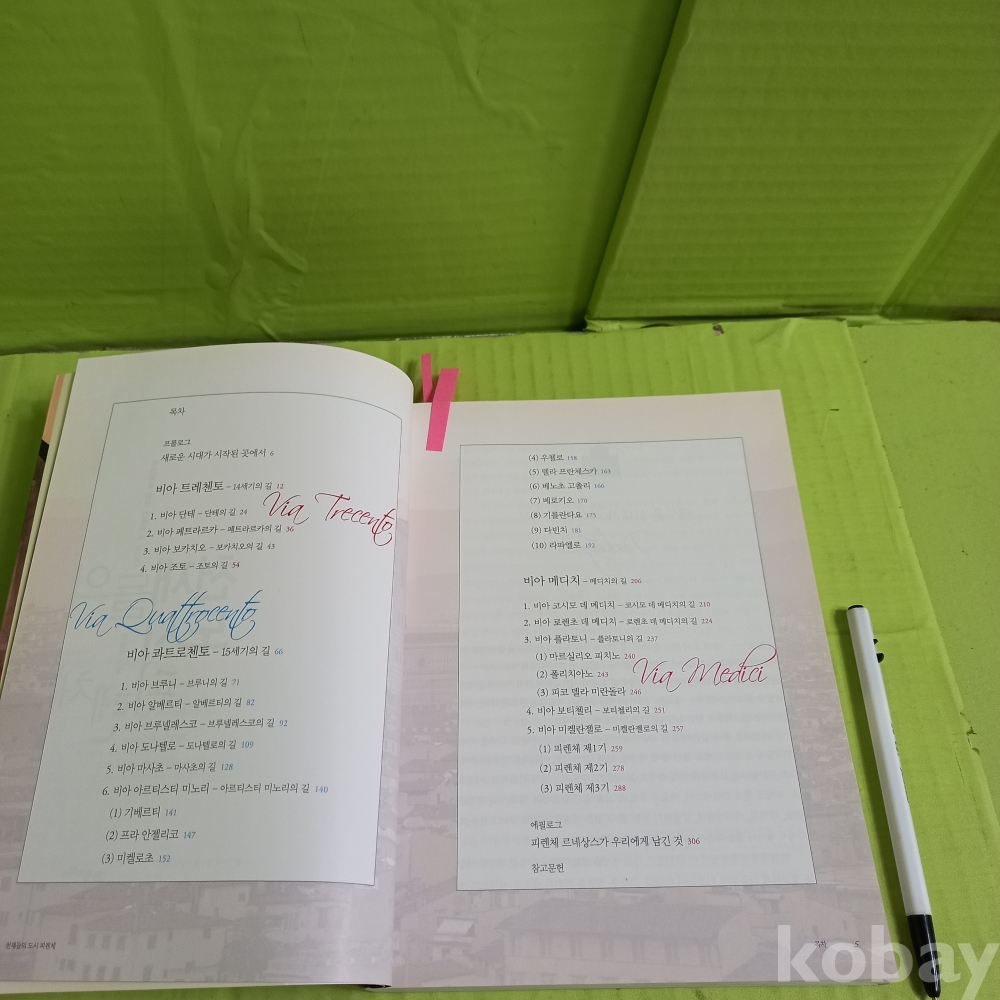 목차
프롤로그
새로운 시대가 시작된 곳에서 6
비아 트레첸토 – 14세기의 길 12
Via Trecento
1. 비아 단테 – 단테의 길 24
2. 비아 페트라르카 – 페트라르카의 길 36
3. 비아 보카치오 – 보카치오의 길 43
4. 비아 조토 – 조토의 길 54
Via Quattrocento
비아 콰트로첸토 – 15세기의 길 66
1. 비아 브루니 – 브루니의 길 71
2. 비아 알베르티 – 알베르티의 길 82
3. 비아 브루넬레스코 – 브루넬레스코의 길 92
4. 비아 도나텔로 – 도나텔로의 길 109
5. 비아 마사초 – 마사초의 길 128
6. 비아 아르티스티 미노리 – 아르티스티 미노리의 길 140
(1) 기베르티 141
(2) 프라 안젤리코 147
(3) 미켈로초 152
천재들의 도시 피렌체
(4) 우첼로 158
(5) 델라 프란체스카 163
(6) 베노초 고촐리 166
(7) 베로키오 170
(8) 기를란다요 175
(9) 다빈치 181
(10) 라파엘로 192
비아 메디치 – 메디치의 길 206
1. 비아 코시모 데 메디치 – 코시모 데 메디치의 길 210
2. 비아 로렌초 데 메디치 – 로렌초 데 메디치의 길 224
3. 비아 플라토니 – 플라토니의 길 237
(1) 마르실리오 피치노 240
Via Medici
(2) 폴리치아노 243
(3) 피코 델라 미란돌라 246
4. 비아 보티첼리 – 보티첼리의 길 251
5. 비아 미켈란젤로 – 미켈란젤로의 길 257
(1) 피렌체 제1기 259
(2) 피렌체 제2기 278
(3) 피렌체 제3기 288
에필로그
피렌체 르네상스가 우리에게 남긴 것 306
참고문헌
목차 5
kobay